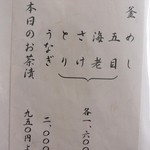 釜めし
五目
海老
さけ
とり
各一、六〇〇
うなぎ
二、〇〇〇
本日のお茶漬
九五〇円より